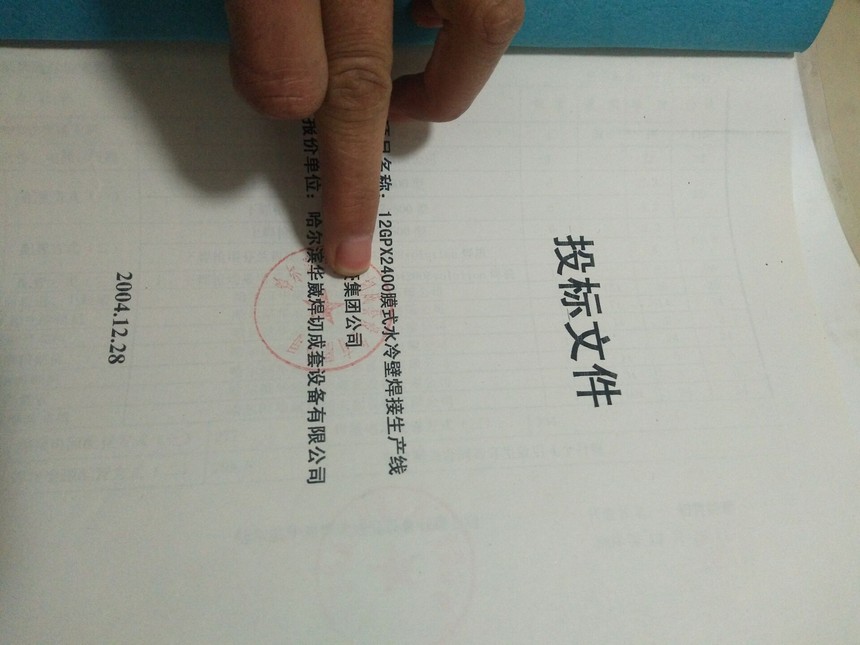 投标文件
项目名称：12GPX2400膜式水冷壁焊接生产线
集团公司
报价单位：哈尔滨华崴焊切成套设备有限公司
2004.12.28